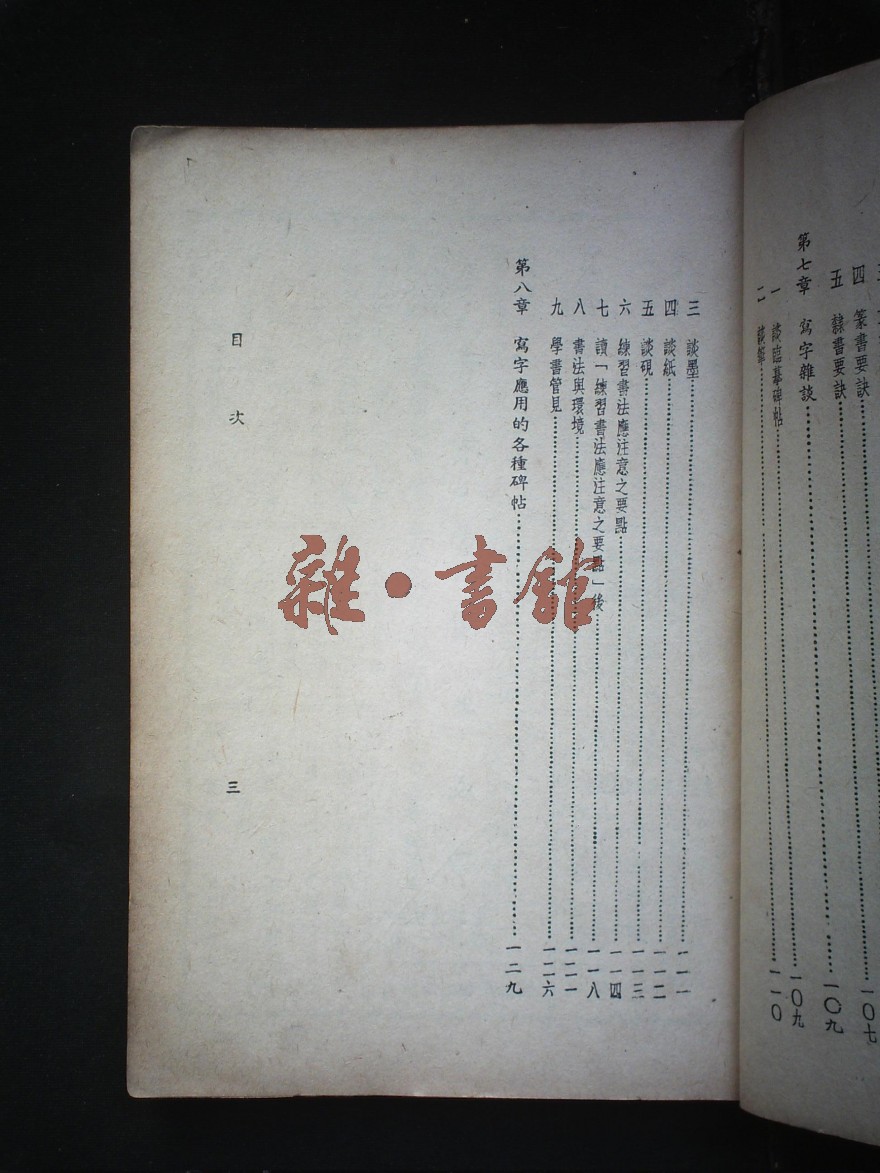 四 篆書要訣……一〇七
五 隸書要訣……一〇九
第七章 寫字雜談……一〇九
一 談臨摹碑帖……一一〇
二 談筆……
三 談墨……一一一
四 談紙……一一二
五 談硯……一一三
六 練習書法應注意之要點……一一四
七 讀「練習書法應注意之要點」後……一一八
八 書法與環境……一二一
九 學書管見……一二六
第八章 寫字應用的各種碑帖……一二九
目次
三
雜·書館